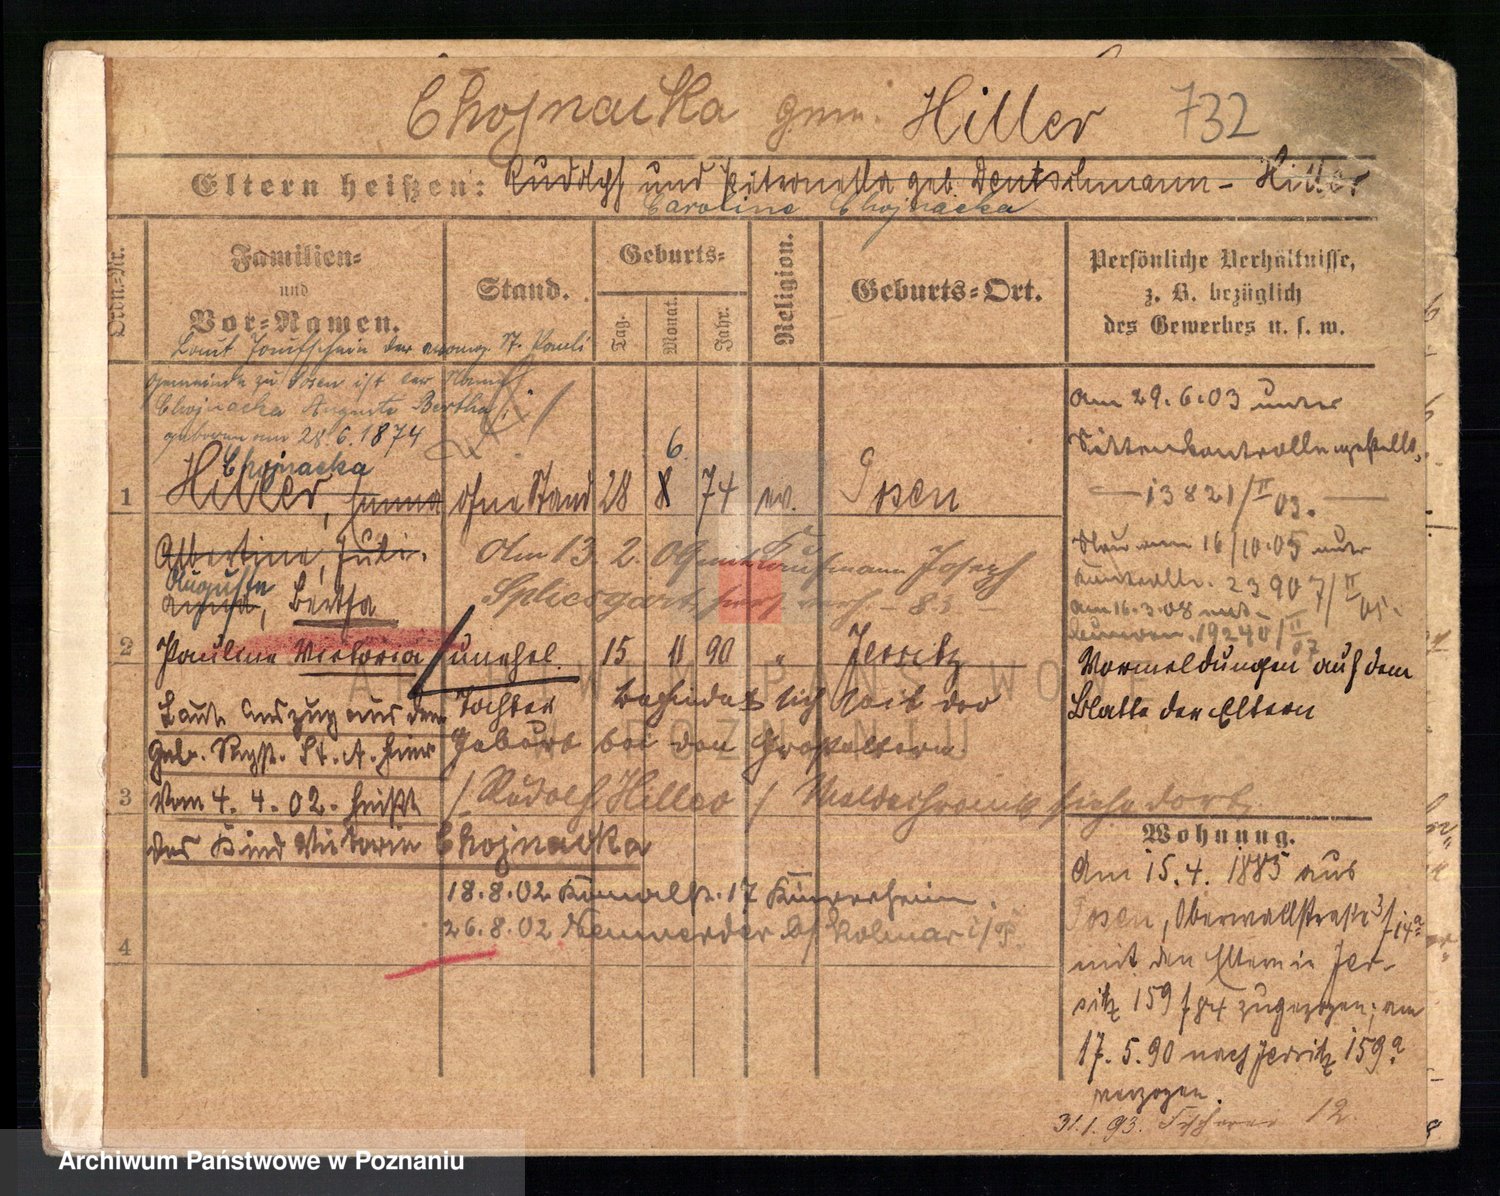 Chojnacka gen. Hiller 732
Eltern heißen: Rudolph und Petronella geb. Deutschmann - Hiller
Caroline Chojnacka
Ordn.-Nr.
Familien-
und
Vor-Namen.
Stand.
Geburts-
Tag.
Monat.
Jahr.
Religion.
Geburts-Ort.
Persönliche Verhältnisse,
z. B. bezüglich
des Gewerbes u. s. w.
Laut Taufschein der evang. St. Pauli
Gemeinde zu Posen ist der Name
Chojnacka Auguste Bertha
geboren am 28.6.1874
Chojnacka
1 Hiller, Emma ohne Stand 28 8 6. 74 ev. Posen
Albertine, Juli.
Auguste
Bertha
Am 13. 2. 09 mit Kaufmann Joseph
2 Pauline Victoria unehel. 15 11 90 " Jersitz
Tochter befindet sich seit der
Geburt bei den Großeltern.
Laut Auszug aus dem
Geb. Regst. St. A. hier
3 vom 4. 4. 02. heißt
/ Rudolf Hiller / Meldechronik siehe dort.
das Kind Victoria Chojnacka
18.8.02
4 26.8.02 Kolmar i/P.
Am 29.6.03 unter
Sittenkontrolle gestellt.
13821/II 03.
16/10.05 unter
Kontrolle. 23907/II 05.
am 16.3.08
19240/II 07
Vormeldungen auf dem
Blatte der Eltern
Wohnung.
Am 15.4. 1885 aus
Posen, Oberwallstraße 3/4 14a
mit den Eltern in Jer-
sitz 159 / 84 zugezogen; am
17. 5. 90 nach Jersitz 159a
verzogen.
31.1.93. 12.
Archiwum Państwowe w Poznaniu
ARCHIWUM PAŃSTWOWE
W POZNANIU